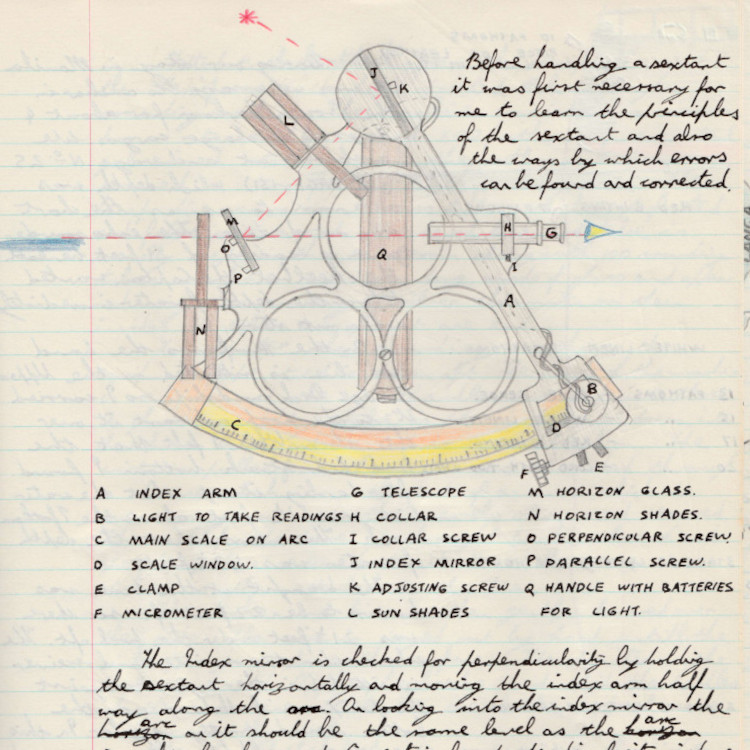 Before handling a sextant
it was first necessary for
me to learn the principles
of the sextant and also
the ways by which errors
can be found and corrected.
J
K
L
M
O
P
Q
H
G
I
A
N
B
C
D
E
F
A INDEX ARM
B LIGHT TO TAKE READINGS
C MAIN SCALE ON ARC
D SCALE WINDOW.
E CLAMP
F MICROMETER
G TELESCOPE
H COLLAR
I COLLAR SCREW
J INDEX MIRROR
K ADJUSTING SCREW
L SUN SHADES
M HORIZON GLASS.
N HORIZON SHADES.
O PERPENDICULAR SCREW.
P PARALLEL SCREW.
Q HANDLE WITH BATTERIES
FOR LIGHT.
The Index mirror is checked for perpendicularity by holding
the sextant horizontally and moving the index arm half
way along the arc. On looking into the index mirror the
arc as it should be the same level as the arc